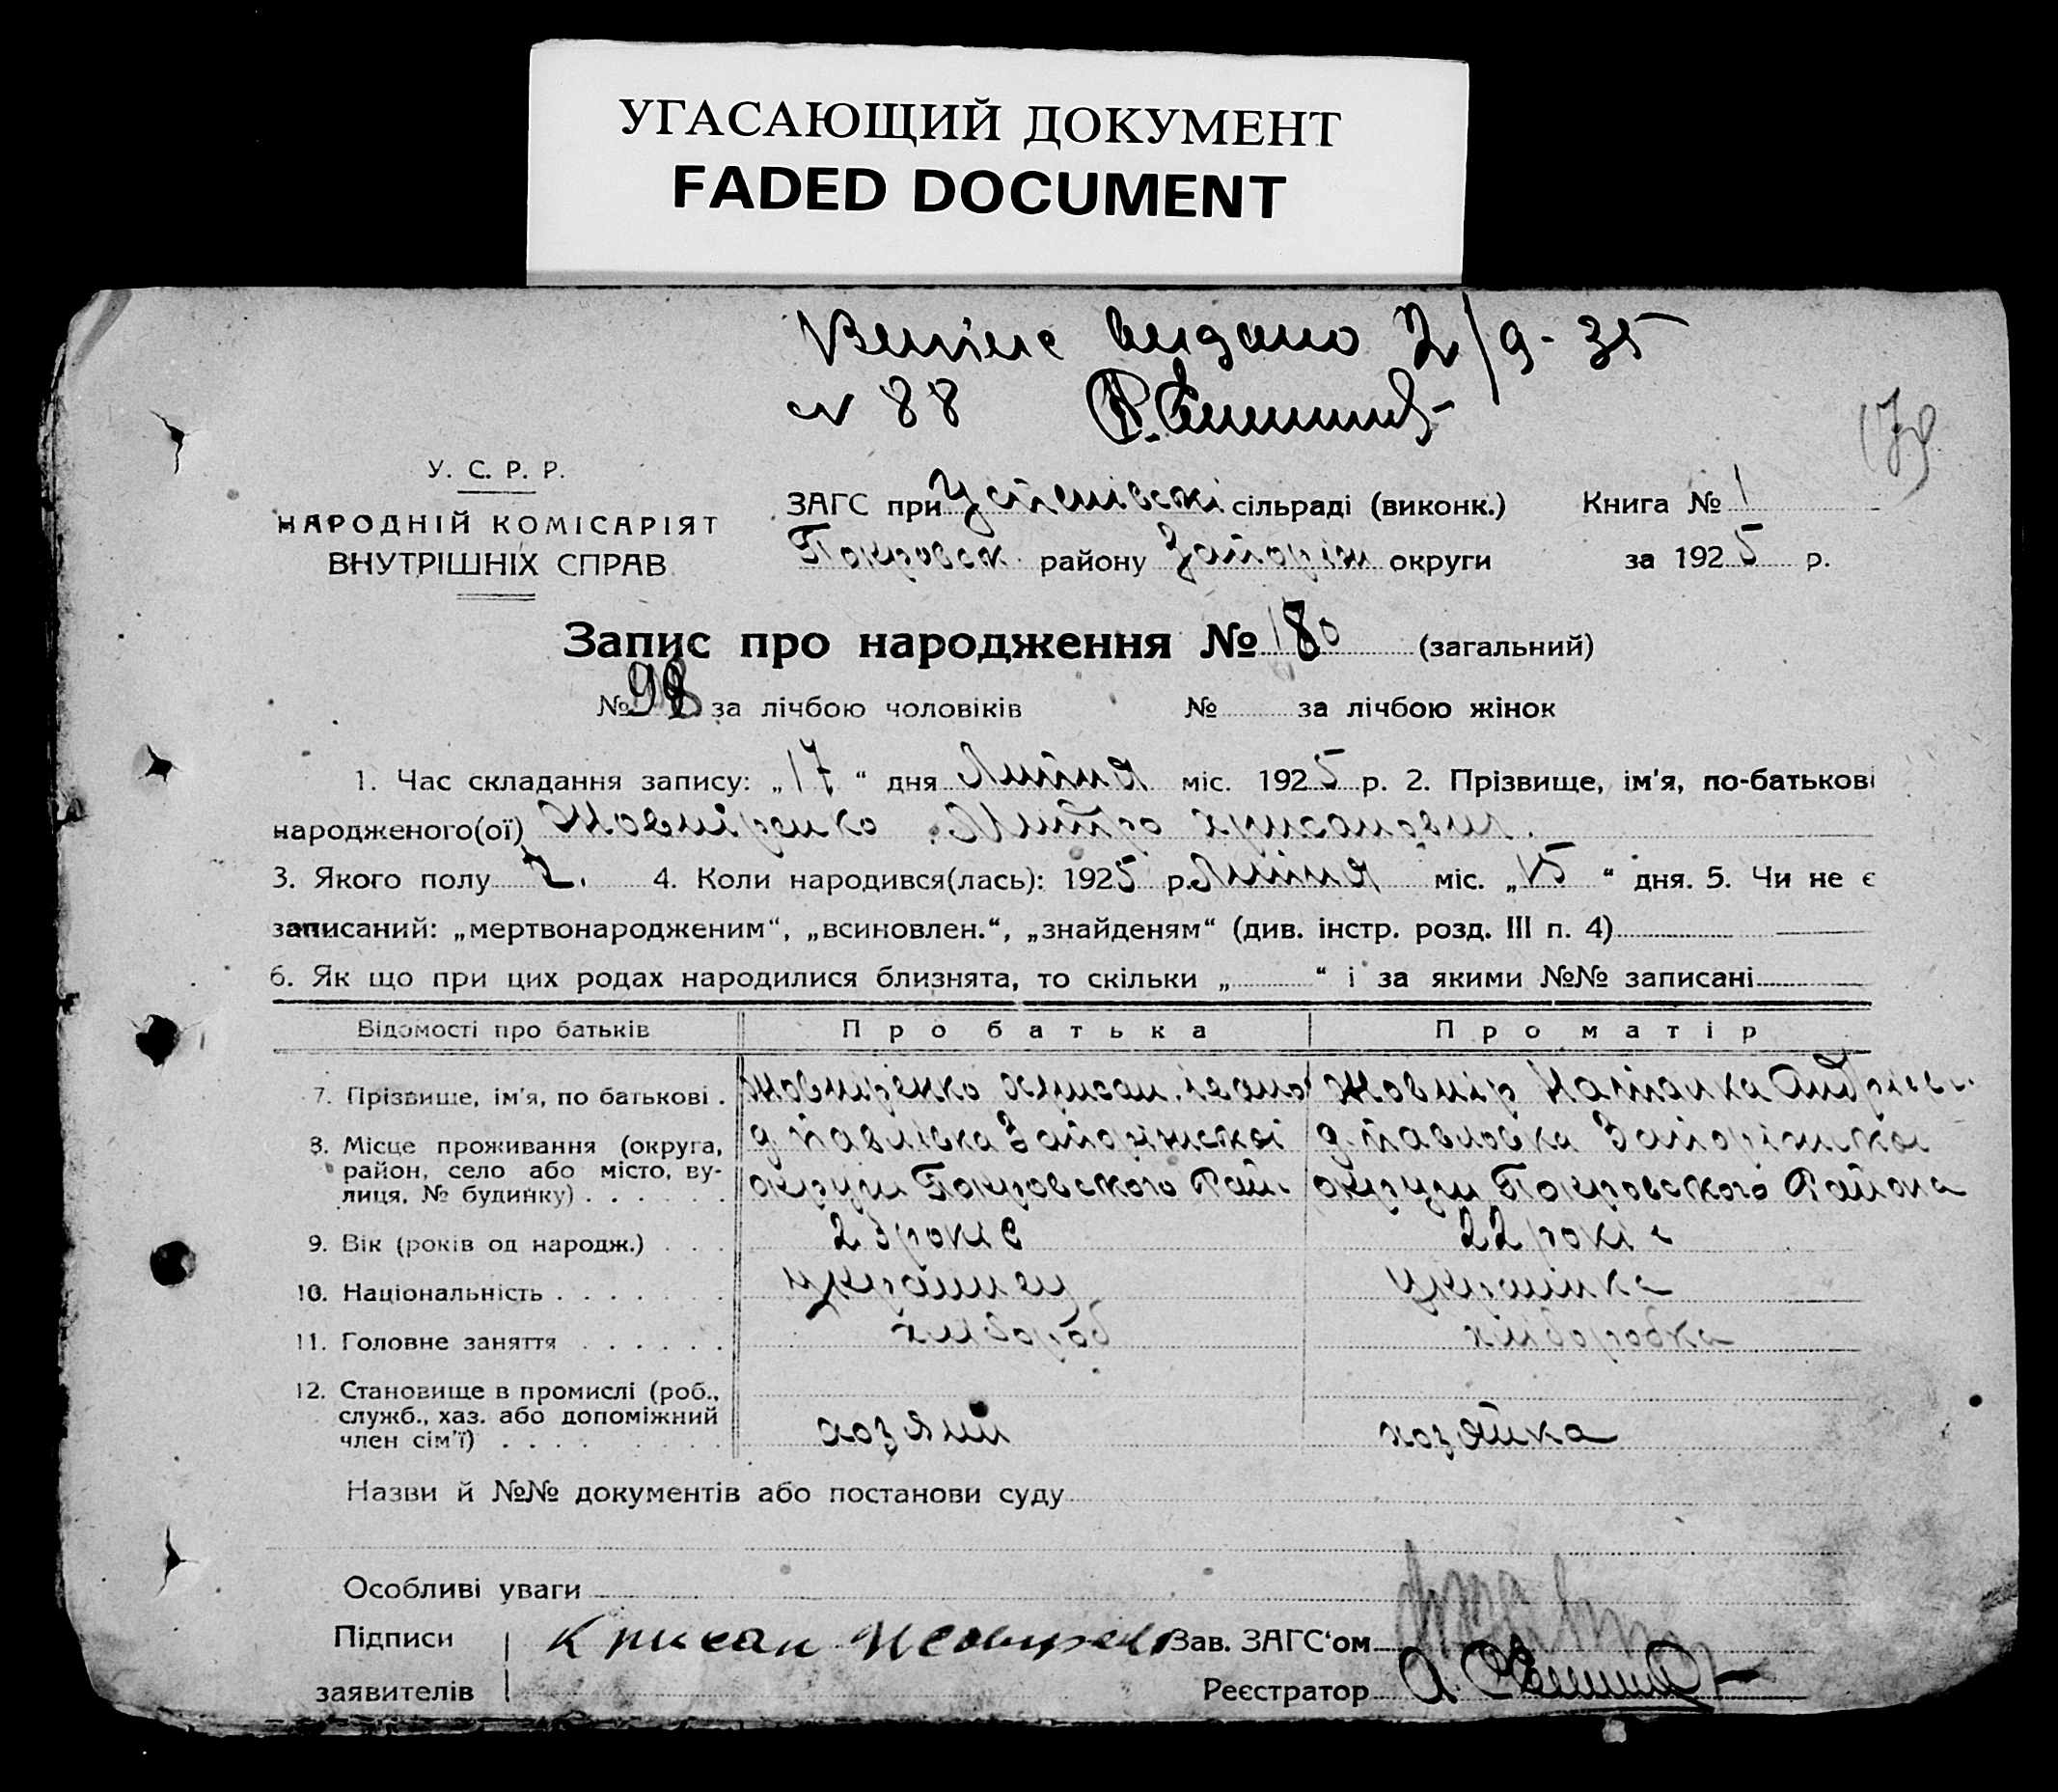 УГАСАЮЩИЙ ДОКУМЕНТ
FADED DOCUMENT
видано 2/9-35
№ 88
У. С. Р. Р.
НАРОДНІЙ КОМІСАРІЯТ
ВНУТРІШНІХ СПРАВ
ЗАГС при Успенівскі сільраді (виконк.) Книга № 1
Покровск. району Запоріж округи за 1925 р.
Запис про народження № 180 (загальний)
№ 98 за лічбою чоловіків № за лічбою жінок
1. Час складання запису: „17“ дня Липня міс. 1925 р. 2. Прізвище, ім'я, по-батькові
народженого(ої) Жовніренко Митро Хрисанович.
3. Якого полу Ч. 4. Коли народився(лась): 1925 р. Липня міс. „15“ дня. 5. Чи не є
записаний: „мертвонародженим“, „всиновлен.“, „знайденям“ (див. інстр. розд. III п. 4)
6. Як що при цих родах народилися близнята, то скільки „ “ і за якими №№ записані
Відомості про батьків Про батька Про матір
7. Прізвище, ім'я, по батькові . Жовніренко Хрисан. Івано Жовнір Наталка Андріев.
8. Місце проживання (округа, район, село або місто, ву-лиця, № будинку) . . . . . .
д. Павлівка Запоріжскоі округи Покровского Рай.
д. Павловка Запоріжскоі округи Покровского Района
9. Вік (років од народж.) . . . 23 років 22 років
10. Національність . . . . . . . украінец украінка
11. Головне заняття . . . . . . хлібороб хліборобка
12. Становище в промислі (роб., служб., хаз. або допоміжний член сім'ї) . . . . . . . . хозяин хозяйка
Назви й №№ документів або постанови суду
Особливі уваги
Підписи Крисан Жовнірен Зав. ЗАГС'ом
заявителів Реєстратор